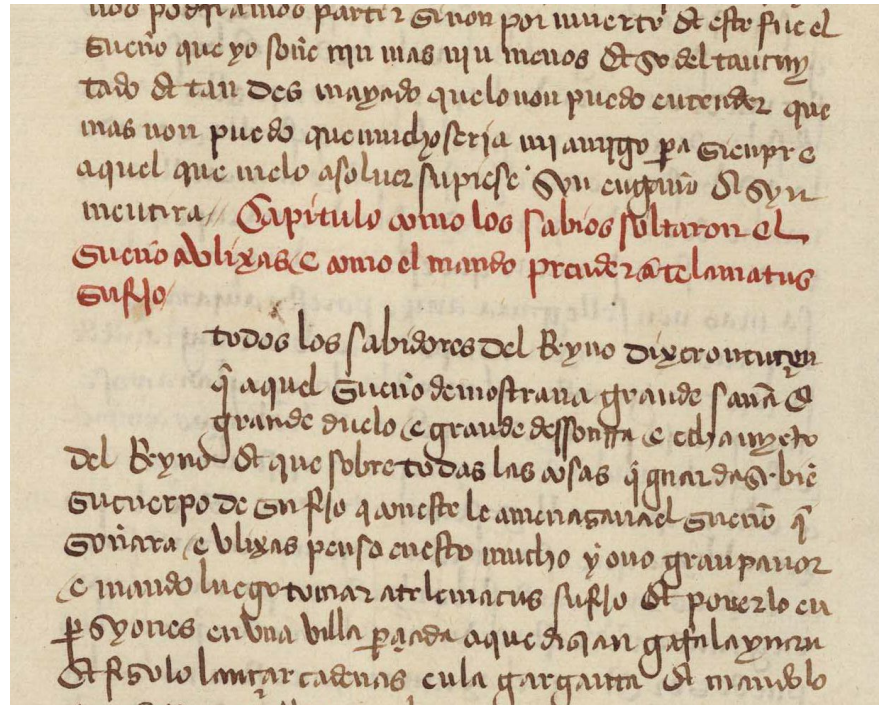 nos podriamos partir sinon por muerto et esto fue el
sueño que yo soñe nin mas nin menos et so del tan cuy
tado et tan des mayado que lo non puedo entender que
mas non puedo que mucho seria mi amigo pa sienpre
aquel que melo asoluer supiese syn engaño et syn
mentira Capitulo como los sabios soltaron el
sueño a Vlixas e como el mando prender a telamatus
su fijo
todos los sabidores del Reyno dixeron
q̃ aquel sueño demostraua grande saña et
grande duelo e grande dessonrra e echamyẽto
del Reyno et que sobre todas las cosas q̃ guardase biẽ
su cuerpo de su fijo q aueste le amenasaua el sueño q̃
soñara e Vlixas penso en esto mucho y ouo gran pauor
e mando luego tomar a telemacus su fijo et ponerlo en
p̱syones en vna villa a que disian
et fisolo lançar cadenas en la garganta et mandolo